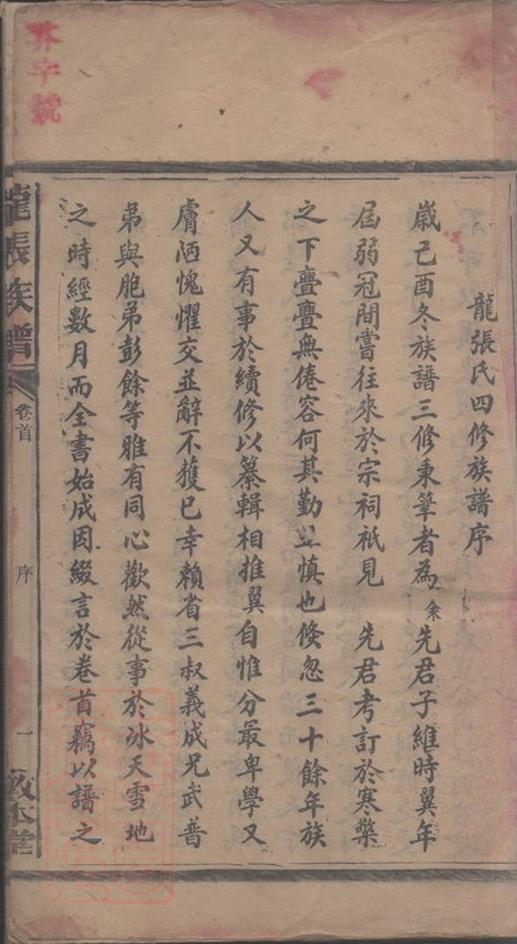 龍張氏四修族譜序
歲己酉冬族譜三修秉筆者為先君子維時翼年
屆弱冠間嘗往來於宗祠祇見　先君考訂於寒檠
之下亹亹無倦容何其勤且慎也倏忽三十餘年族
人又有事於續修以纂輯相推翼自惟分最卑學又
膚陋愧懼交並辭不獲已幸賴省三叔義成兄武普
弟與胞弟彭餘等雅有同心歡然從事於冰天雪地
之時經數月而全書始成因綴言於卷首竊以譜之
龍張族譜
卷首
序
一
敦本堂
字號